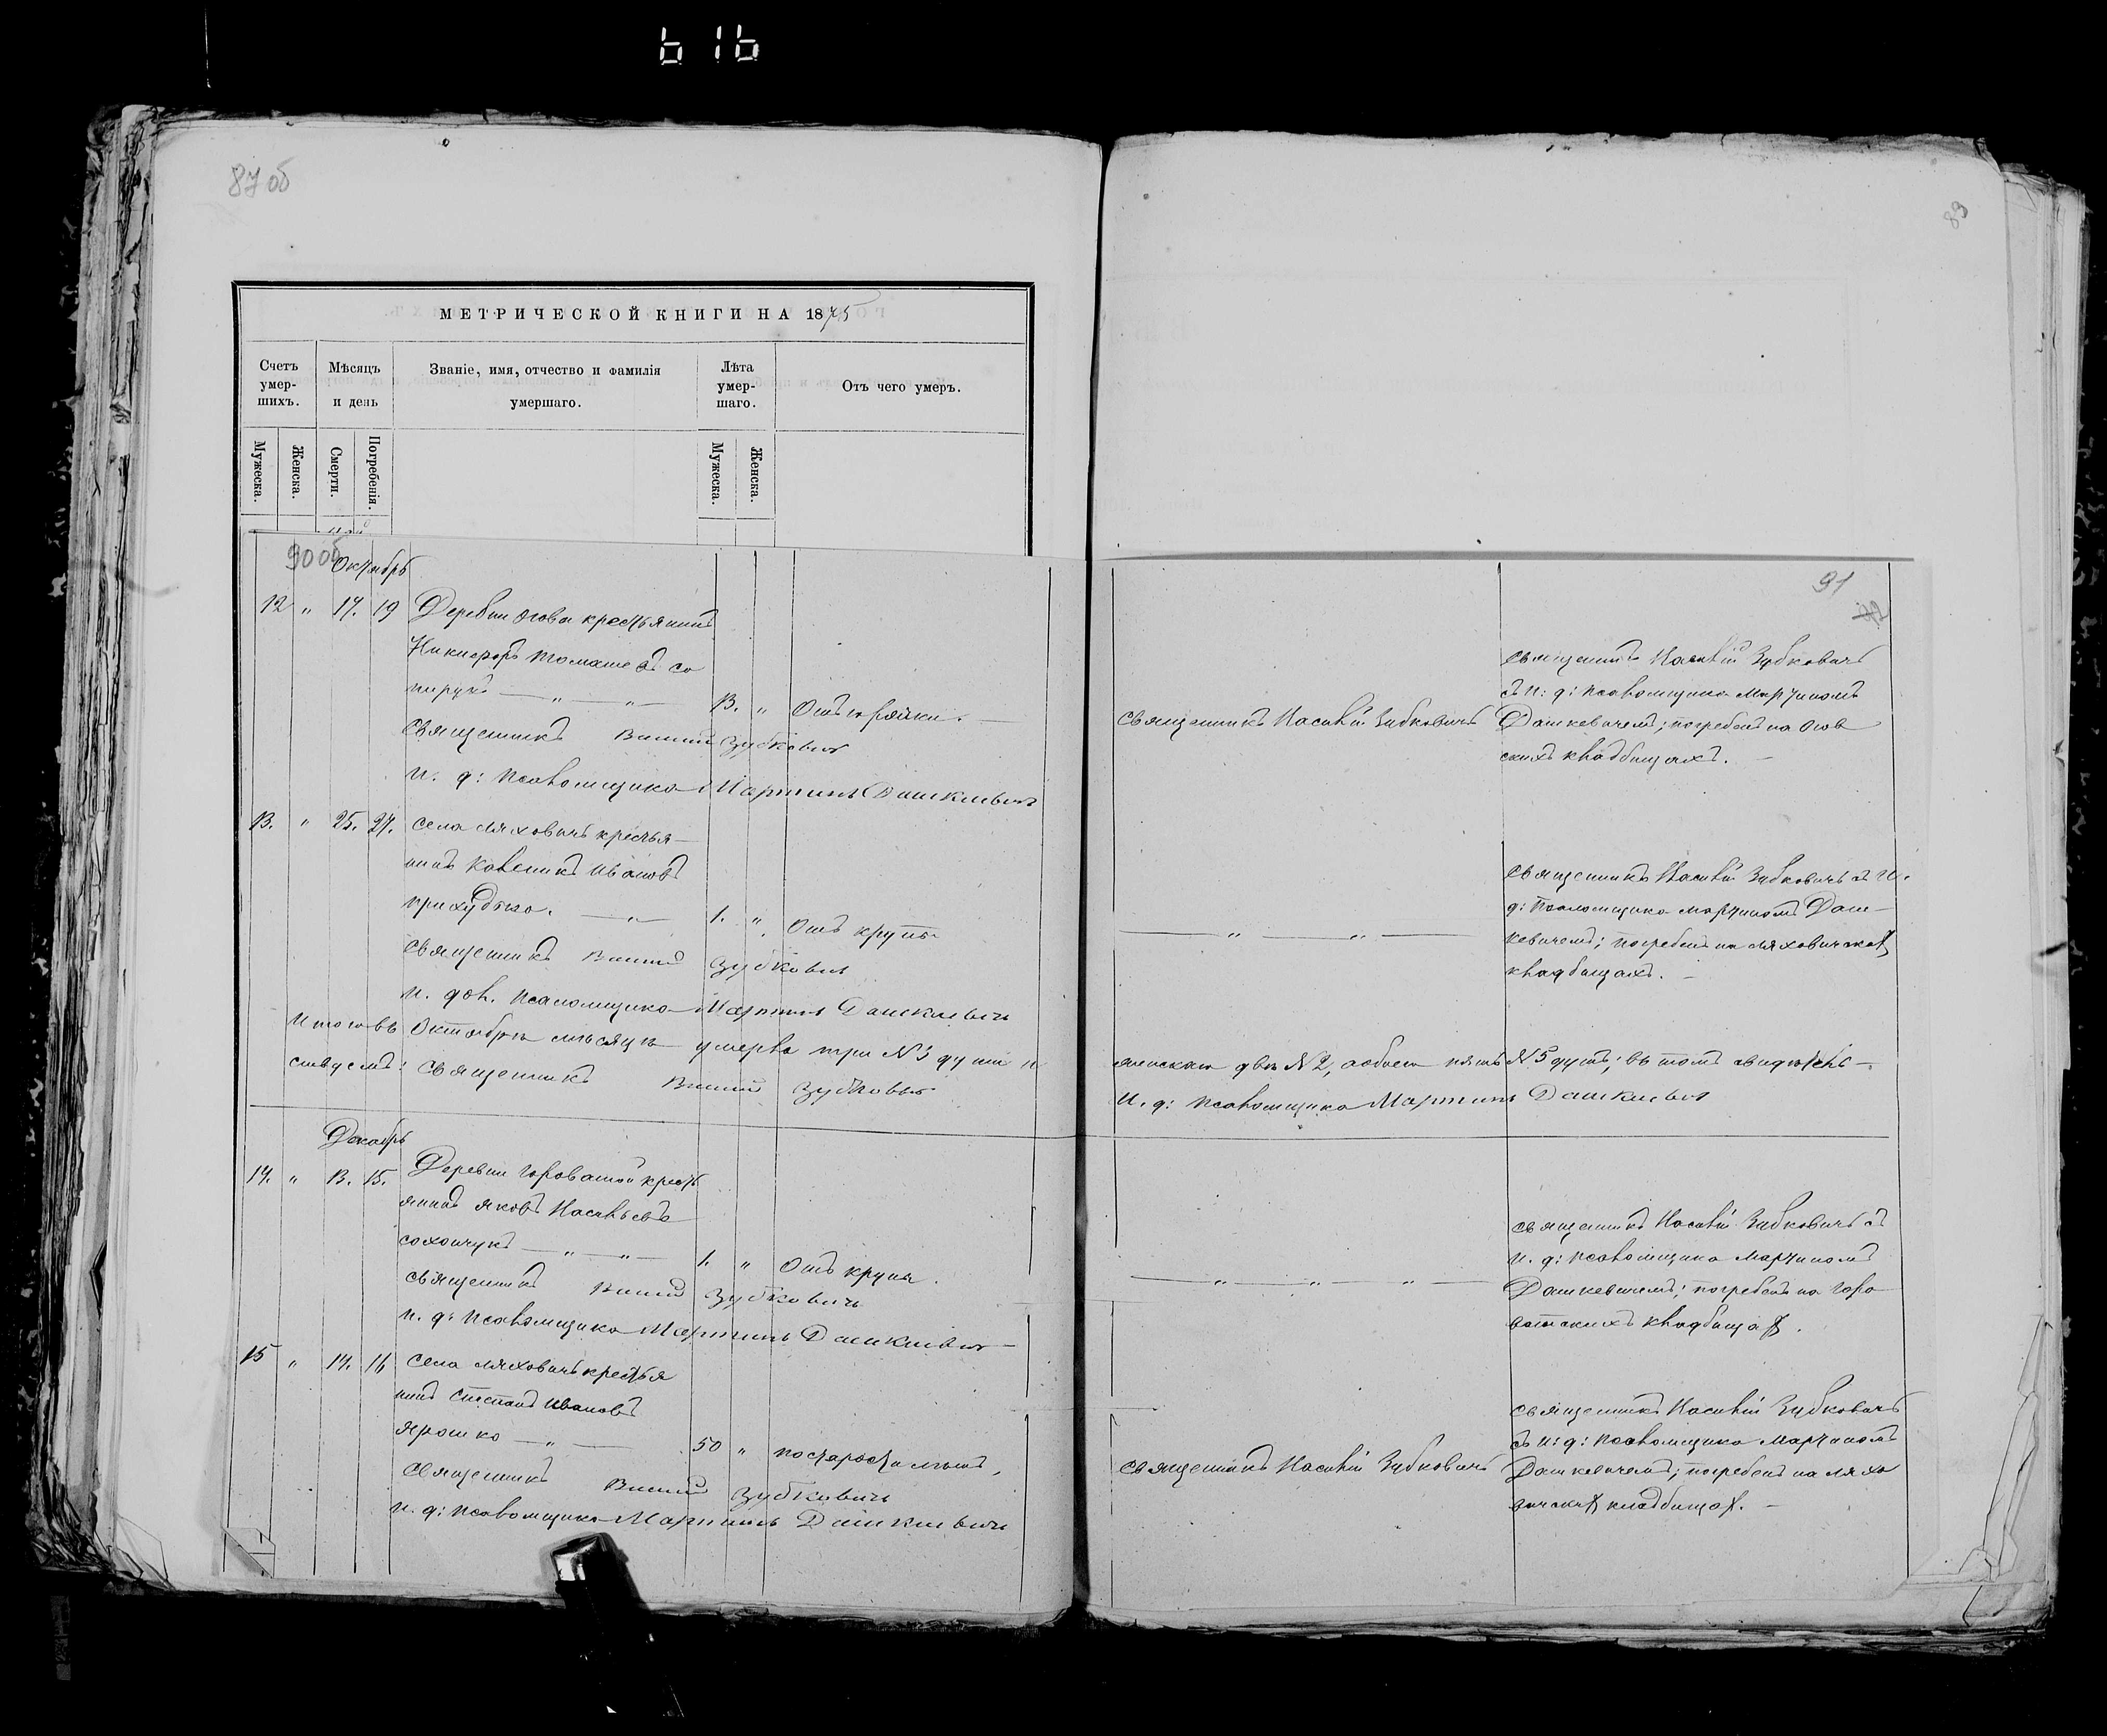 616
87 об
89
МЕТРИЧЕСКОЙ КНИГИ НА 1875
Счетъ умер-шихъ.
Мѣсяцъ и день
Званіе, имя, отчество и фамилія умершаго.
Лѣта умер-шаго.
Отъ чего умеръ.
Мужеска.
Женска.
Смерти.
Погребенія.
Мужеска.
Женска.
90 об
91
Октябрь
12 " 17. 19 Деревни Огова крестьянинъ
Никифоръ
" " 13. " Отъ
Священникъ Василій Зубковичъ
И. д: Псаломщика Мартинъ Дашкевичъ
Священникъ Василій Зубковичъ
Священникъ Василій Зубковичъ
съ и: д: Псаломщика Мартиномъ
Дашкевичемъ; погребенъ на Огов
скихъ кладбищахъ.
13. " 25. 27. Села Ляховичъ крестья
нинъ Ивановъ
" 1. " Отъ крупа
Священникъ Василій Зубковичъ
И. дол. Псаломщика Мартинъ Дашкевичъ
" "
Священникъ Василій Зубковичъ съ И.
д: Псаломщика Мартиномъ Даш-
кевичемъ; погребенъ на Ляховичскихъ
кладбищахъ.
Итого въ Октябрѣ мѣсяцѣ умерло три №3 души и
женскаго двѣ №2, обоего пять №5 душъ; въ томъ свидѣтель-
ствуемъ: Священникъ Василій Зубковичъ
И. д: Псаломщика Мартинъ Дашкевичъ
Декабрь
14. " 13. 15. Деревни Гороватой кресть
янинъ Яковъ Васильевъ
" " 1. " Отъ крупа.
Священникъ Василій Зубковичъ
И. д: Псаломщика Мартинъ Дашкевичъ
" " "
Священникъ Василій Зубковичъ съ
И. д: Псаломщика Мартиномъ
Дашкевичемъ; погребенъ на Горо
ватскихъ кладбищахъ.
15 " 14. 16 Села Ляховичъ крестья
нинъ Степанъ Ивановъ
Ярошко " 50 "
Священникъ Василій Зубковичъ
И. д: Псаломщика Мартинъ Дашкевичъ
Священникъ Василій Зубковичъ
Священникъ Василій Зубковичъ
съ и: д: Псаломщика Мартиномъ
Дашкевичемъ; погребенъ на Ляхо
вичскихъ кладбищахъ.